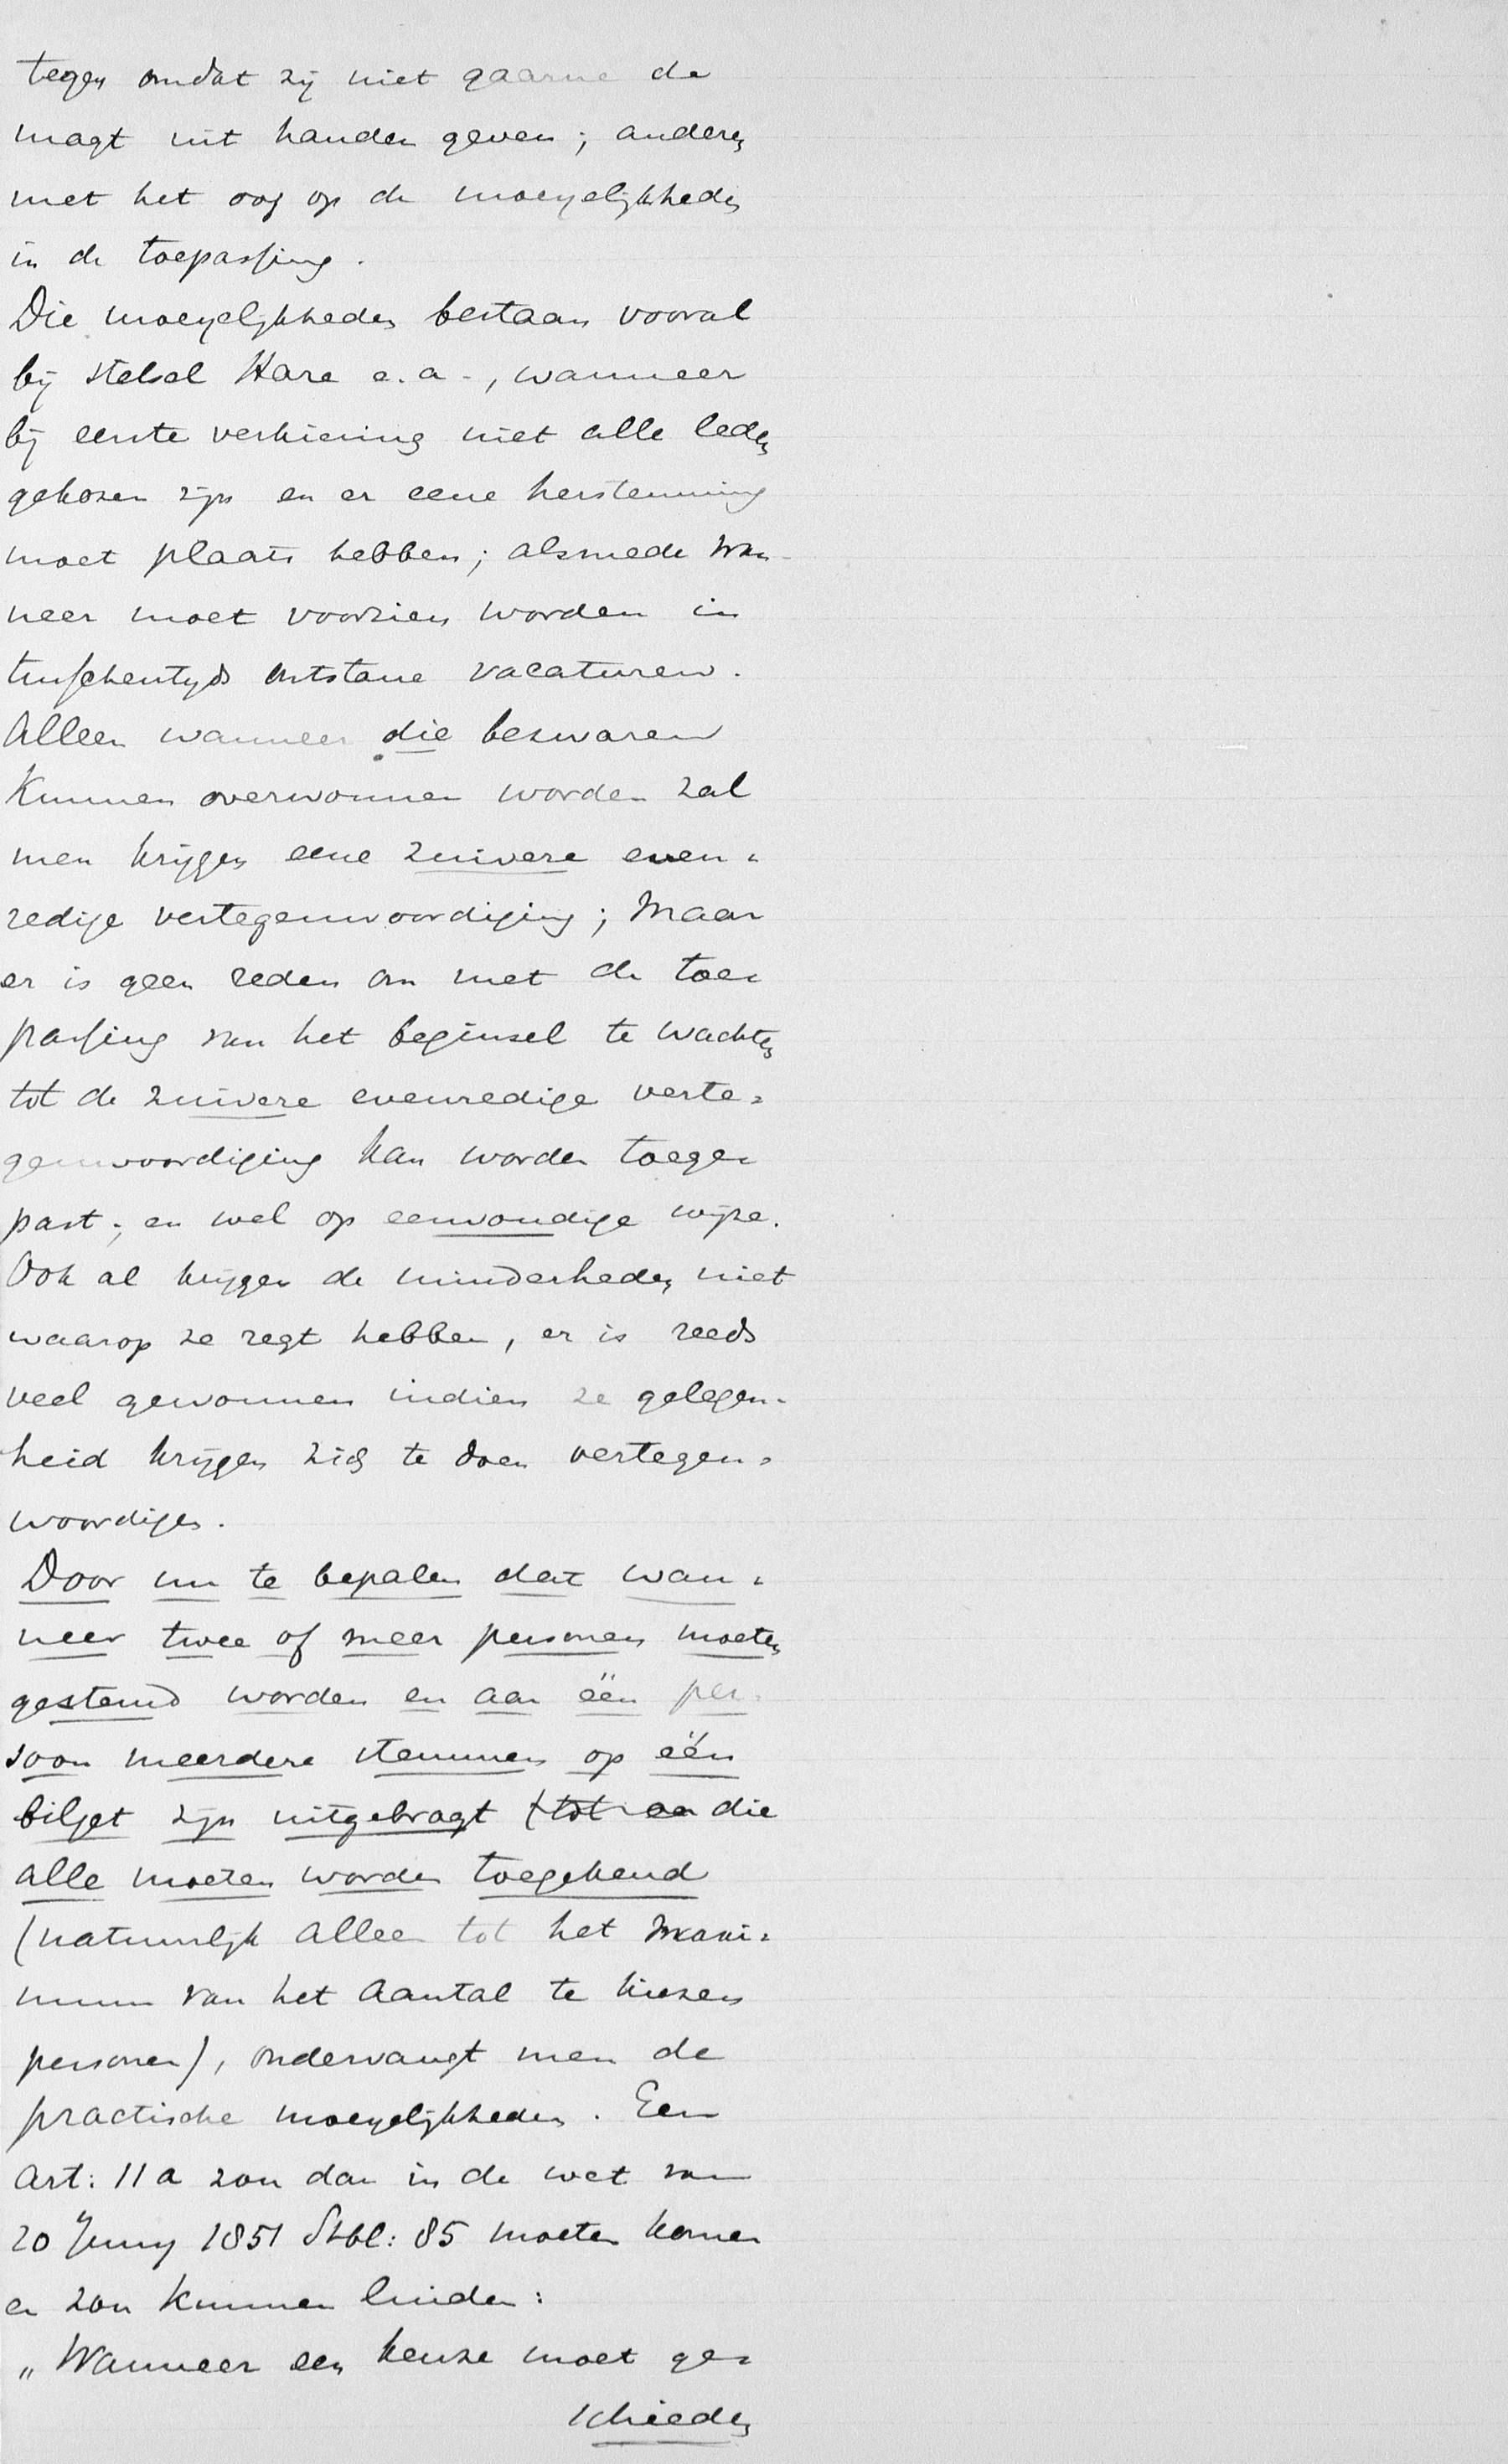 tegen omdat zij niet gaarne de
magt uit handen geven; anderen
met het oog op de moeyelijkheden
in de toepassing.
Die moeyelijkheden bestaan vooral
bij stelsel Hare e.a., wanneer
bij eerste verkiezing niet alle leden
gekozen zijn en er eene herstemming
moet plaats hebben; alsmede wan-
neer moet voorzien worden in
tusschentyds ontstane vacaturen.
Alleen wanneer die bezwaren
kunnen overwonnen worden zal
men krijgen eene zuivere even=
redige vertegenwoordiging; maar
er is geen reden om met de toe=
passing van het beginsel te wachten
tot de zuivere evenredige verte=
genwoordiging kan worden toege=
past; en wel op eenvoudige wijze.
Ook al krijgen de minderheden niet
waarop ze regt hebben, er is reeds
veel gewonnen indien ze gelegen=
heid krijgen zich te doen vertegen=
woordigen.
Door nu te bepalen dat wan=
neer twee of meer personen moeten
gestemd worden en aan één per=
soon meerdere stemmen op één
biljet zijn uitgebragt (tot aa die
alle moeten worden toegekend
(natuurlijk alleen tot het maxi=
mum van het aantal te kiezen
personen), ondervangt men de
practische moeyelijkheden. Een
Art: 11a zou dan in de wet van
20 Juny 1851 Stbl: 85 moeten komen
en zou kunnen luiden:
„Wanneer een keuze moet ge=
schieden